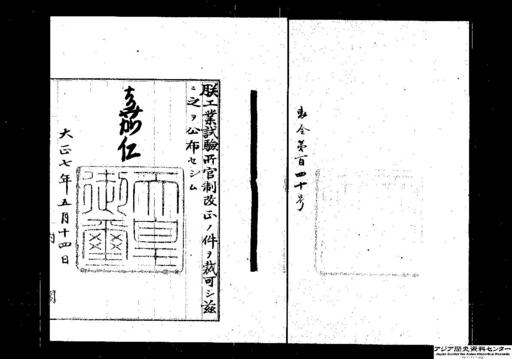 勅令第百四十号
朕工業試験所官制改正ノ件ヲ裁可シ茲
ニ之ヲ公布セシム
嘉仁
天皇御璽
大正七年五月十四日
アジア歴史資料センター
Japan Center for Asian Historical Records